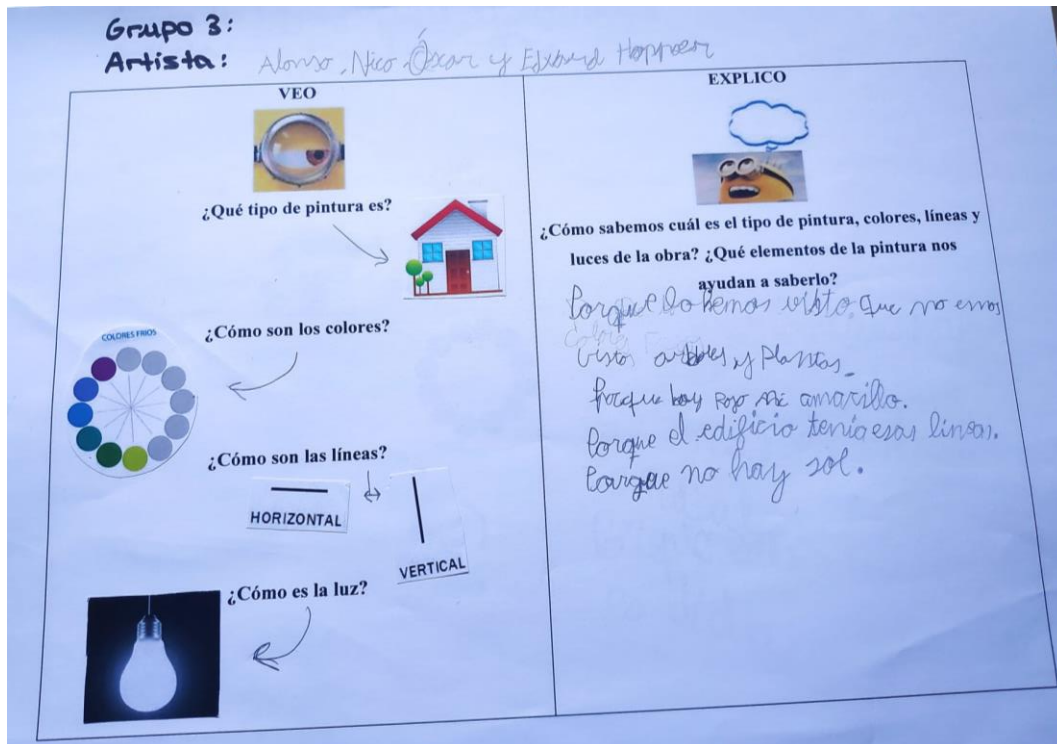 Grupo 3:
Artista: Alonso, Nico Óscar y Edward Hopper
VEO
¿Qué tipo de pintura es?
¿Cómo son los colores?
COLORES FRIOS
¿Cómo son las líneas?
HORIZONTAL
VERTICAL
¿Cómo es la luz?
EXPLICO
¿Cómo sabemos cuál es el tipo de pintura, colores, líneas y
luces de la obra? ¿Qué elementos de la pintura nos
ayudan a saberlo?
Porque lo hemos visto que no emos
vistos arboles y Plantas.
Porque hay rojo amarillo.
Porque el edificio tenía esas lineas.
Porque no hay sol.